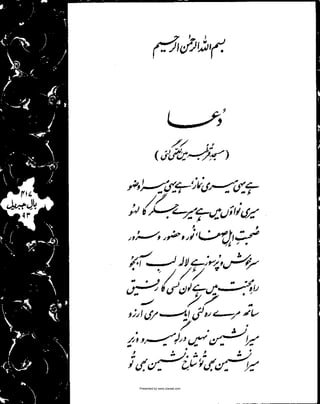 بسم اللہ الرحمٰن الرحیم
دُعا
(مسجدِ قرطبہ میں لکھی گئی)
ہے یہی میری نماز، ہے یہی میرا وضو
میری نواؤں میں ہے میرے جگر کا لہو
صحبتِ اہلِ صفا، نور و حضور و سرور
سرخوش و پرسوز ہے لالہ لبِ آبجو
راہِ محبت میں ہے کون کسی کا رفیق
ساتھ مرے رہ گئی ایک مری آرزو
میرا نشیمن نہیں درگہِ میر و وزیر
میرا نشیمن بھی تو، شاخِ نشیمن بھی تو
۳۱۷
بالِ جبریل
۹۳